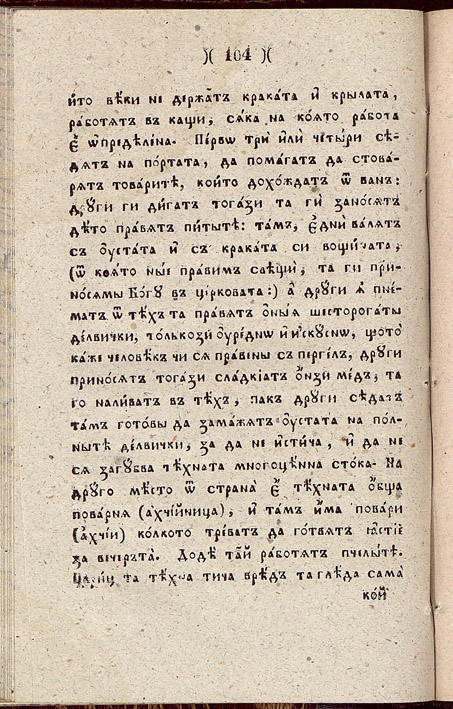 )( 104 )(
и҆́то вѣ́ки не держа́тъ крака́та и҆ крылата,
ра́ботятъ въ каши, сѧка на ко́ѧто рабо́та
є҆̀ ѡ҆предѣле́на. Пе́рвѡ три̑ и҆ли̑ четы́ри сѣ-
дѧтъ на по́ртата, да помага́тъ да стова́-
рѧтъ това́ритѣ, кои́то дохо́ждатъ ѿ ванъ:
дрꙋги ги ди́гатъ тога́зи та ги̑ зано́сѧтъ
дѣ́то пра́вѧтъ пи́тытѣ: та́мъ, є҆дни̑ ва́лѧтъ
съ ᲂу҆ста́та и҆ съ крака́та си воши́ната,
(ѿ ко́ѧто ны́е пра́вимъ свѣщи̑, та ги при-
но́сѧмы Бо́гꙋ въ цѣ́рковата:) а҆̀ дрꙋги ѧ҆̀ пнѐ-
матъ ѿ тѣ́хъ та пра́вѧтъ ѻ҆ны́ѧ шесторога́ты
де́лвички, то́лкози ᲂу҆ре́днѡ и҆ и҆скꙋ́снѡ, щото̀
ка́же человѣ́къ чи сѧ пра́вены съ перге́лъ, дрꙋги
прино́сѧтъ тога́зи сла́дкїатъ ѻ҆́нзи ме́дъ, та
го нали́ватъ въ тѣ́хъ, па́къ дрꙋги сѣдатъ
та́мъ гото́вы да зама́жѧтъ ᲂу҆ста́та на по́л-
нытѣ де́лвички, за да не и҆сти́ча, и҆ да не
сѧ загꙋ́бва тѣ́хната многоцѣ́нна сто́ка. На
дрꙋго мѣ́сто ѿ страна̀ є҆̀ тѣ́хната ѻ҆́бща
пова́рнѧ (а҆хчі́йница), и҆ та́мъ и҆́ма пова́ри
(а҆хчі́и) ко́лкото тре́ватъ да го́твѧтъ ꙗ҆стїѐ
за ве́черьта. Додѐ та́й ра́ботѧтъ пчелы́тѣ.
та тѣ́хна тича врѣ́дъ та глѣ́да сама̀
ко́й